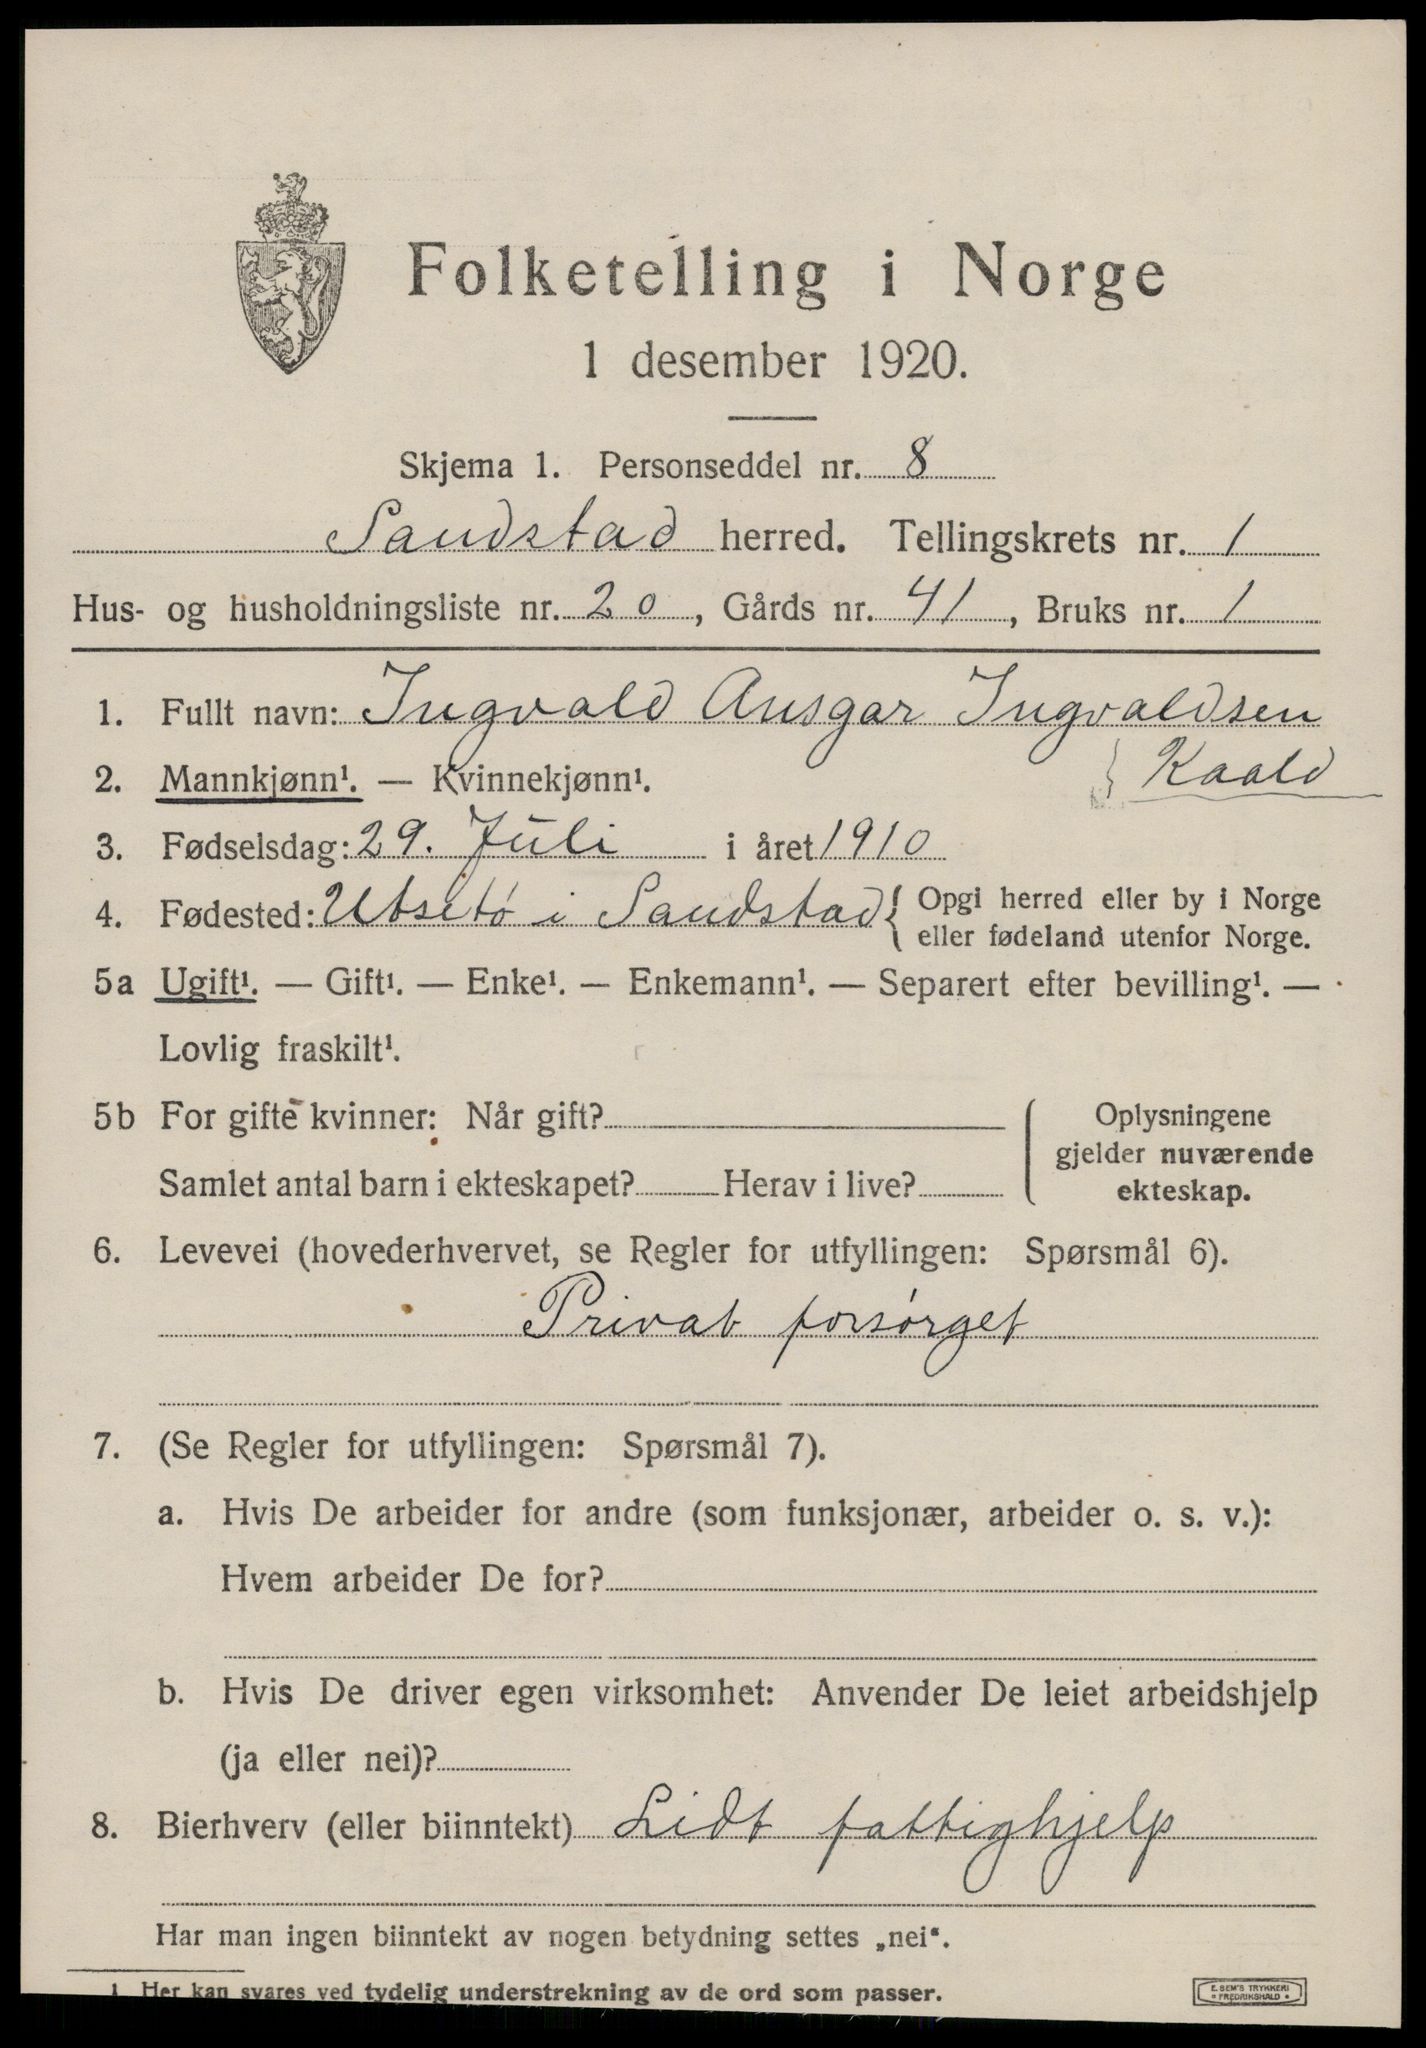 Folketelling i Norge
1 desember 1920.
Skjema 1. Personseddel nr. 8
Sandstad herred. Tellingskrets nr. 1
Hus- og husholdningsliste nr. 20, Gårds nr. 41, Bruks nr. 1
1. Fullt navn: Ingvald Ansgar Ingvaldsen
Kaald
2. Mannkjønn¹. — Kvinnekjønn¹.
3. Fødselsdag: 29. Juli i året 1910
4. Fødested: Utsetø i Sandstad { Opgi herred eller by i Norge
eller fødeland utenfor Norge.
5a Ugift¹. — Gift¹. — Enke¹. — Enkemann¹. — Separert efter bevilling¹. —
Lovlig fraskilt¹.
5b For gifte kvinner: Når gift?
Samlet antal barn i ekteskapet? Herav i live?
Oplysningene
gjelder nuværende
ekteskap.
6. Levevei (hovederhvervet, se Regler for utfyllingen: Spørsmål 6).
Privat forsørget
7. (Se Regler for utfyllingen: Spørsmål 7).
a. Hvis De arbeider for andre (som funksjonær, arbeider o. s. v.):
Hvem arbeider De for?
b. Hvis De driver egen virksomhet: Anvender De leiet arbeidshjelp
(ja eller nei)?
8. Bierhverv (eller biinntekt) Lidt fattighjelp
Har man ingen biinntekt av nogen betydning settes „nei“.
1. Her kan svares ved tydelig understrekning av de ord som passer.
E. SEM'S TRYKKERI
FREDRIKSHALD